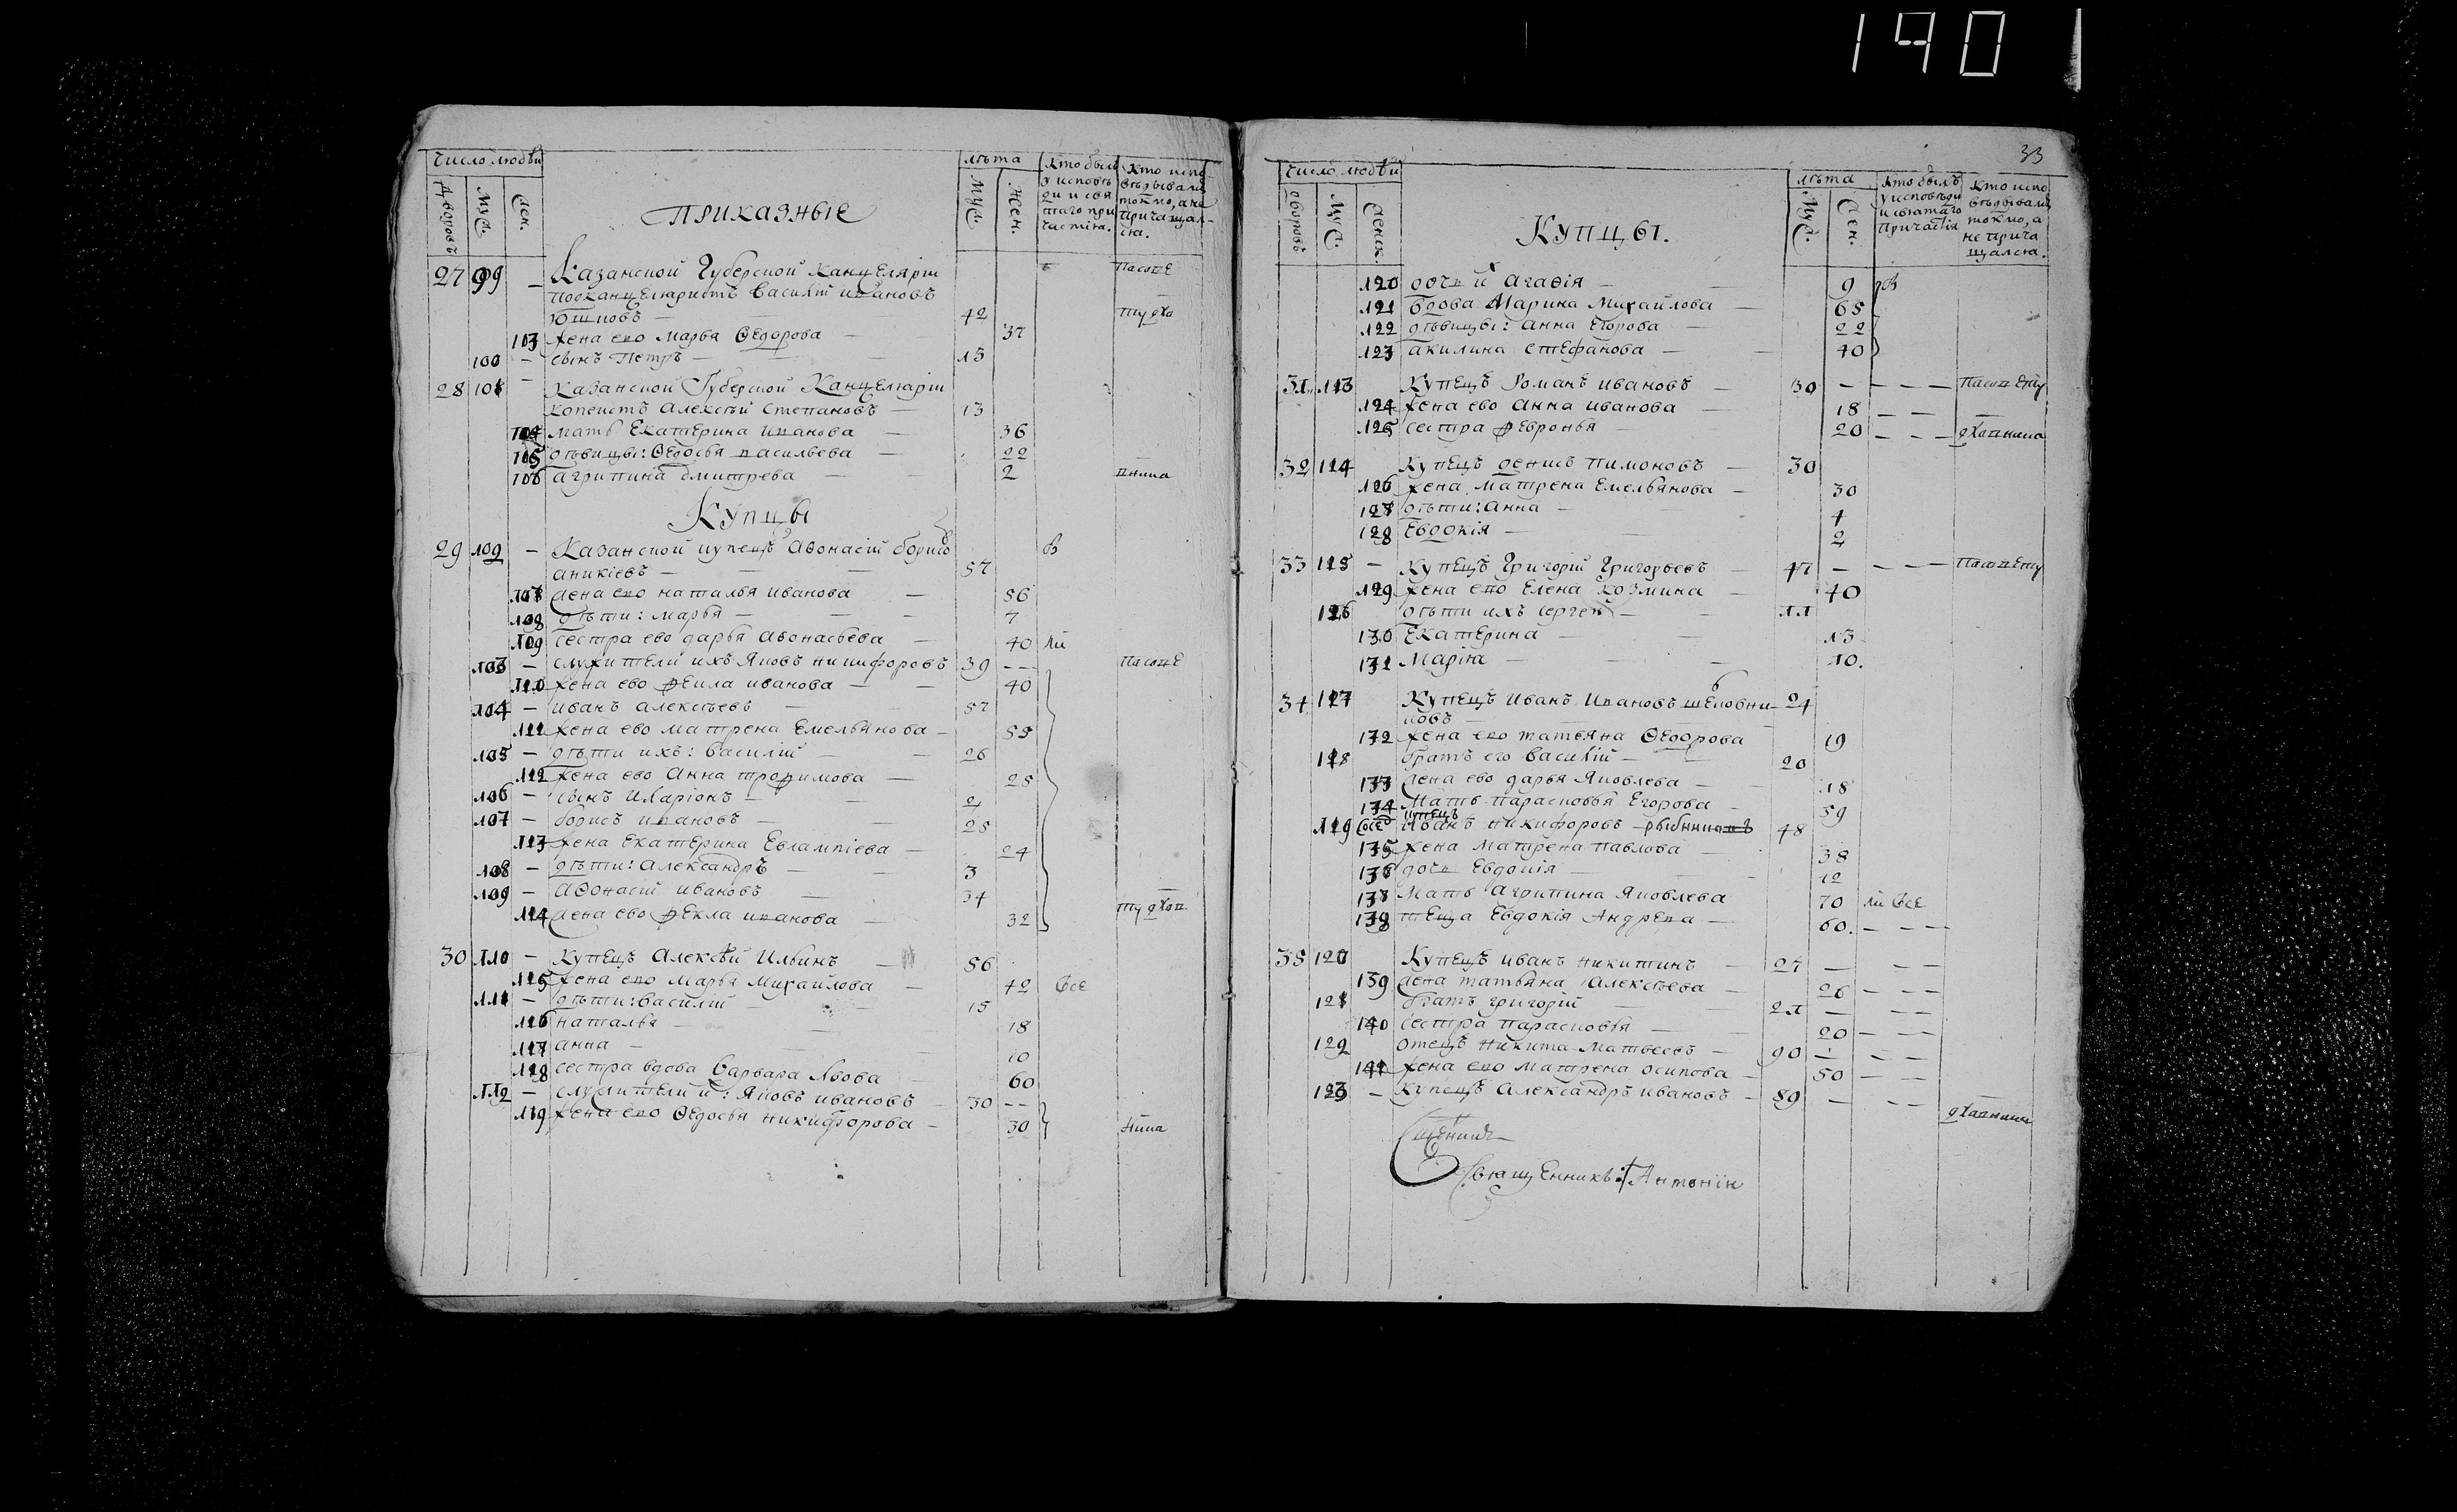 190
Число людѣй
Дворовъ
Муж.
Жен.
ПРИКАЗНЫЕ
лѣта
Муж.
Жен.
27 99 — Казанской Губерской Канцелярии
подканцеляристъ Василій Ивановъ
Юшковъ — 42
103 жена ево Марья Ѳедорова — 37
100 — сынъ Петръ — 15
28 101 — Казанской Губерской Канцелярии
копеистъ Алексѣй Степановъ — 13
104 мать Екатерина Иванова — 36
105 дѣвицы: Ѳедосья Васильева — 22
106 Агрипина Дмитрева — 2
Купцы
29 102 — Казанской купецъ Аѳонасій Борисовъ
Аникіевъ — 57
107 жена ево Наталья Иванова — 56
108 дѣти: Марья — 7
109 сестра ево Дарья Аѳонасьева — 40
103 — служители ихъ Яковъ Никифоровъ 39
110 жена ево Ѳекла Иванова — 40
104 — Иванъ Алексѣевъ — 57
111 жена ево Матрена Емельянова — 55
105 — дѣти ихъ: Василій — 26
112 жена ево Анна Трофимова — 25
106 — сынъ Иларіонъ — 2
107 — Борисъ Ивановъ — 25
113 жена Екатерина Евлампіева — 24
108 — дѣти: Александръ — 3
109 — Аѳонасій Ивановъ — 34
114 жена ево Ѳекла Иванова — 32
30 110 — Купецъ Алексѣй Ильинъ — 56
115 жена ево Марья Михайлова — 42 все
111 — дѣти: Василій — 15
116 Наталья — 18
117 Анна — 10
118 сестра вдова Варвара Львова 60
112 — служители й: Яковъ Ивановъ — 30
119 жена ево Ѳедосья Никифорова — 30
33
Число людѣй
Дворовъ
Муж.
Женск.
Купцы.
лѣта
Муж.
Жен.
Кто былъ
у исповѣди
и святаго
причастія
Кто испо
вѣдывался
токмо, а
не прича
щался.
120 дочь й Агаѳія — 9
121 вдова Марина Михайлова — 65
122 дѣвицы: Анна Егорова — 22
123 Акилина Стефанова — 40
31 113 Купецъ Романъ Ивановъ — 30
124 жена ево Анна Иванова — 18
125 сестра Февронья — 20
32 114 Купецъ Денисъ Пимоновъ — 30
126 жена Матрена Емельянова — 30
127 дѣти: Анна — 4
128 Евдокія — 2
33 115 — Купецъ Григорій Григорьевъ — 47
129 жена ево Елена Козмина — 40
116 дѣти ихъ Сергей — 11
130 Екатерина — 13
131 Маріа — 10.
34 117 Купецъ Иванъ Ивановъ Шелковни- 24
ковъ —
132 жена ево Татьяна Ѳедорова 19
118 братъ его Василій — 20
133 жена ево Дарья Яковлева — 18
134 Мать Парасковья Егорова — 59
купецъ
119 Иванъ Никифоровъ — Рыбник 48
135 жена Матрена Павлова — 38
136 дочь Евдокія — 12
137 Мать Агрипина Яковлева 70 все
138 теща Евдокія Андрева — 60.
35 120 Купецъ Иванъ Никитинъ — 27
139 жена Татьяна Алексѣева — 26
121 братъ Григорій — 21
140 сестра Парасковья — 20
122 отецъ Никита Матвеевъ — 90
141 жена ево Матрена Осипова — 50
123 — Купецъ Александръ Ивановъ — 59
Священникъ: Антоній